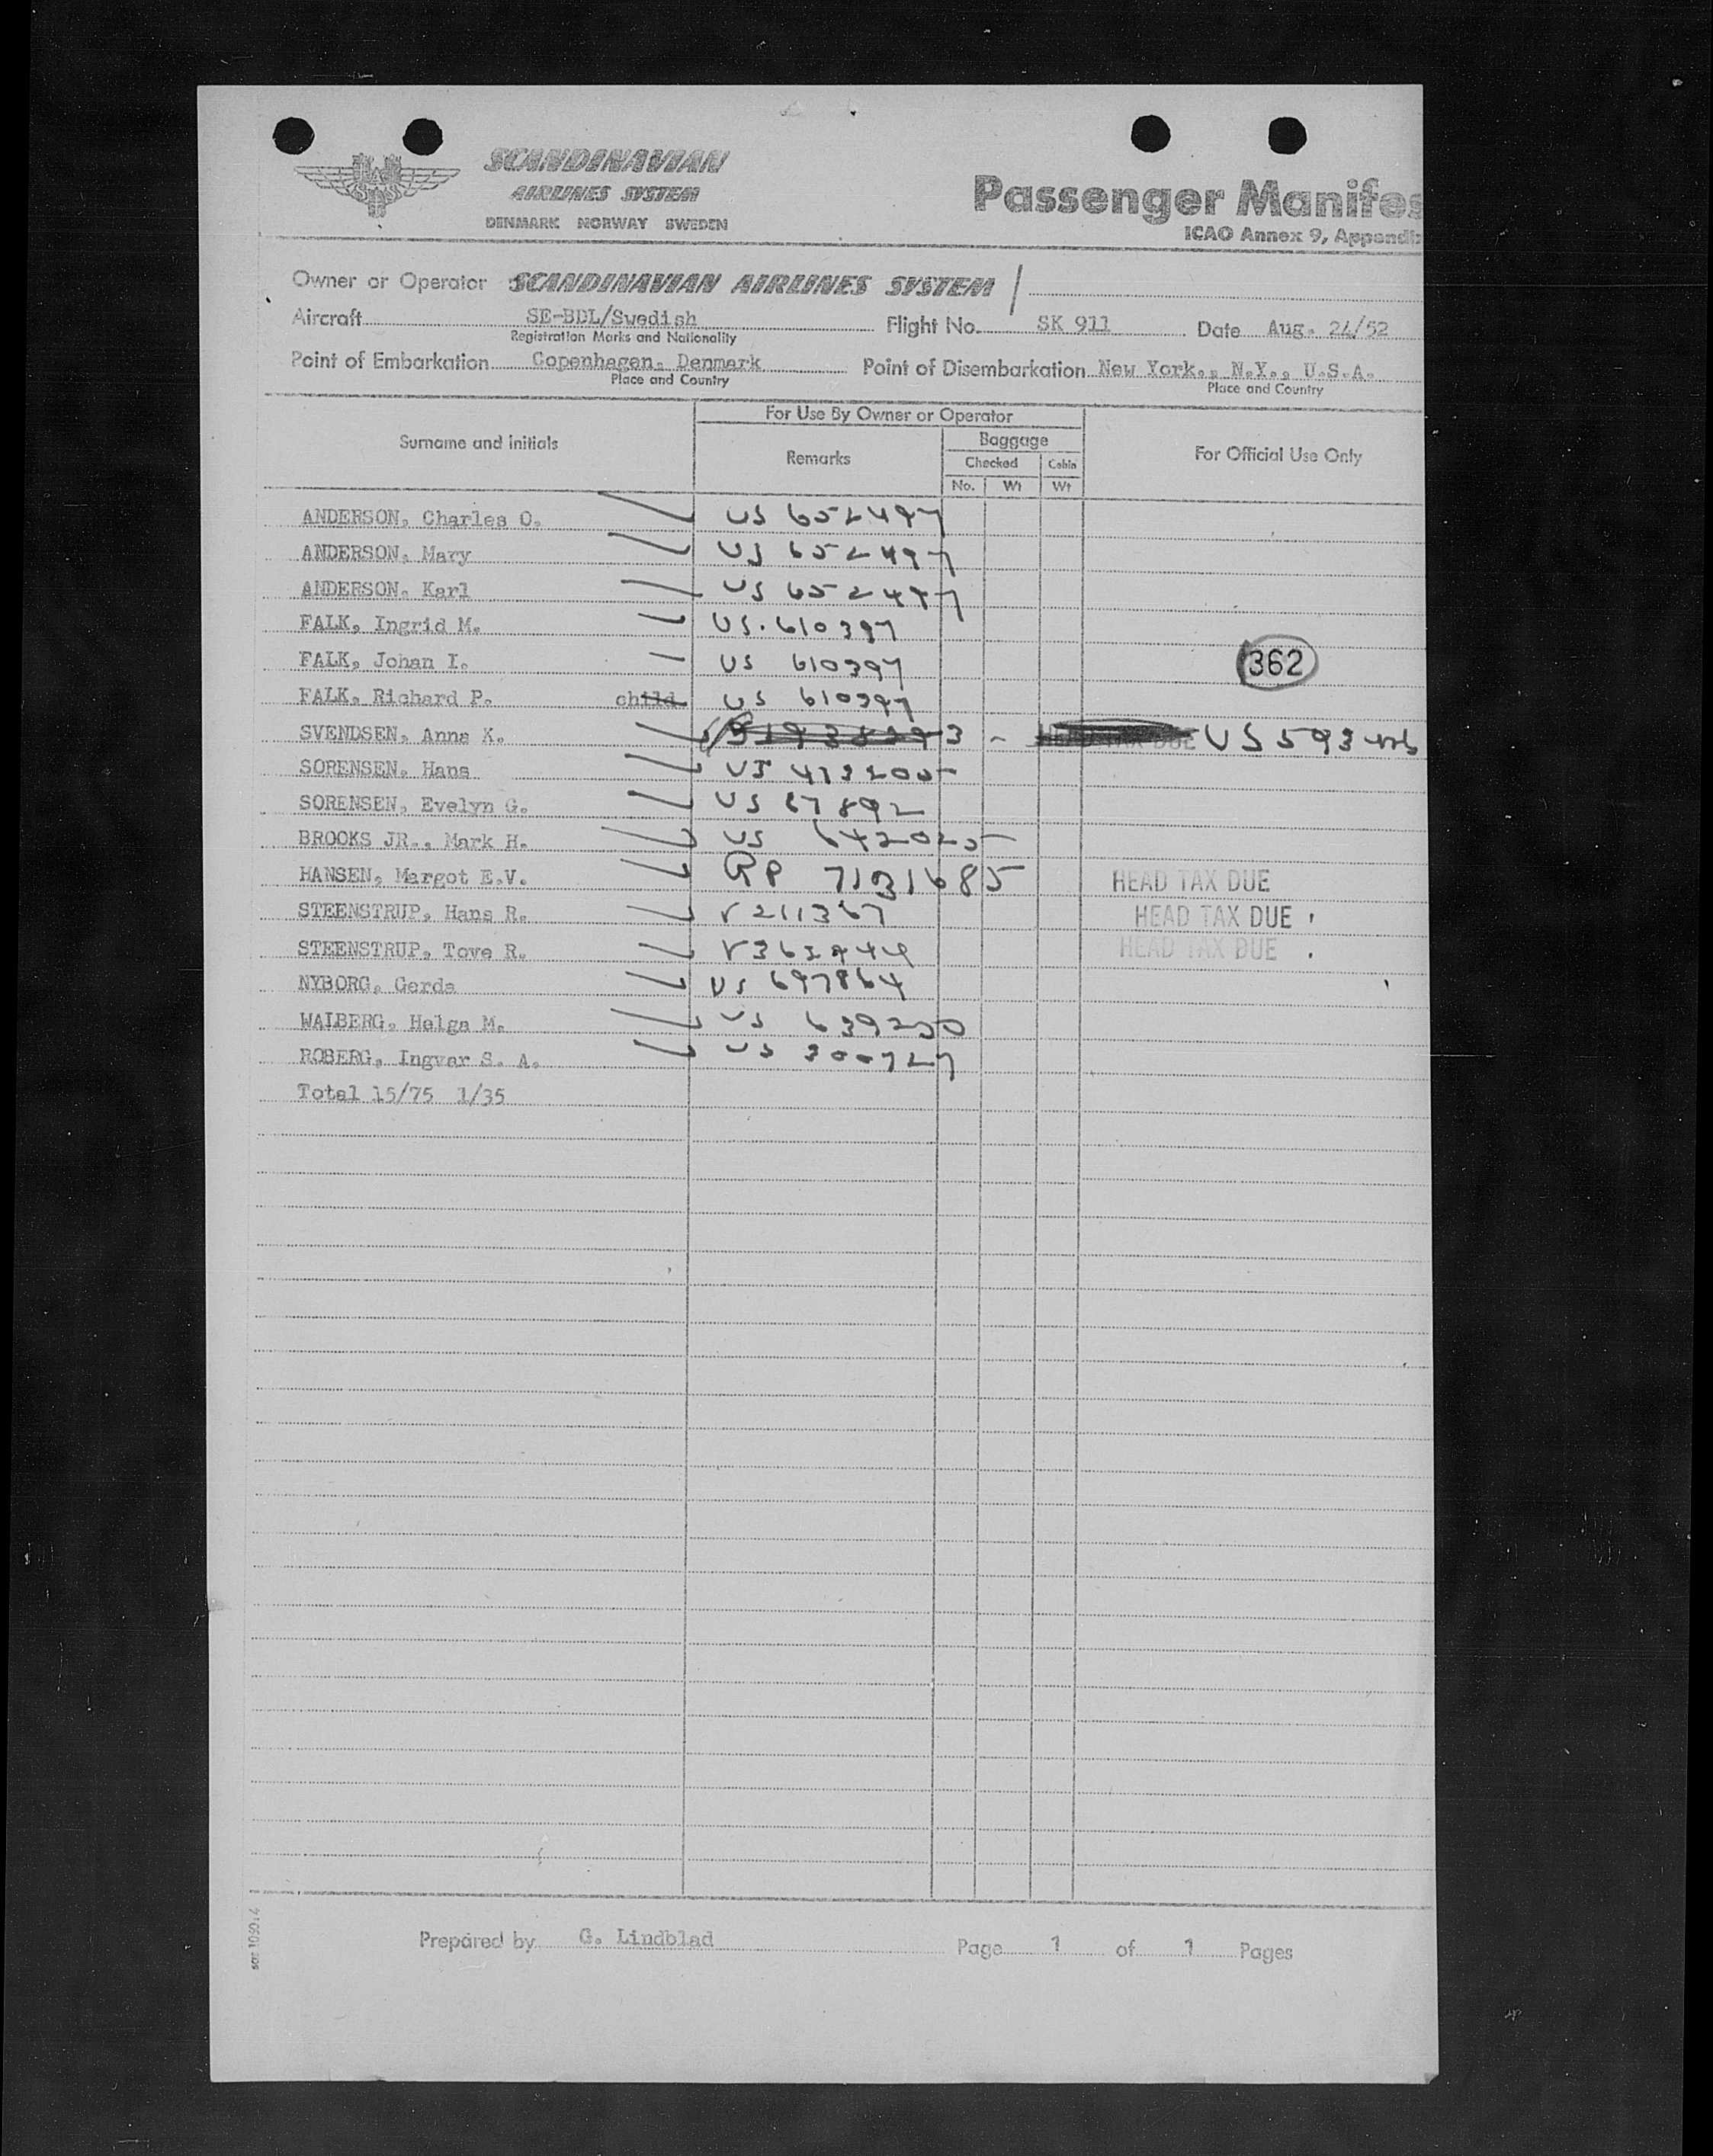 SCANDINAVIAN
AIRLINES SYSTEM
DENMARK NORWAY SWEDEN
Passenger Manifes
ICAO Annex 9, Appendi
Owner or Operator SCANDINAVIAN AIRLINES SYSTEM /
Aircraft SE-BDL/Swedish Flight No. SK 911 Date Aug. 24/52
Registration Marks and Nationality
Point of Embarkation Copenhagen, Denmark Point of Disembarkation New York., N.Y., U.S.A.
Place and Country Place and Country
For Use By Owner or Operator
Surname and initials Remarks Baggage For Official Use Only
Checked Cabin
No. Wt Wt
ANDERSON, Charles O. US 652497
ANDERSON, Mary US 652497
ANDERSON, Karl US 652497
FALK, Ingrid M. US. 610397
FALK, Johan I. US 610397 362
FALK, Richard P. child US 610397
SVENDSEN, Anna K. US 593
SORENSEN, Hans US
SORENSEN, Evelyn G. US 87892
BROOKS JR., Mark H. US 642025
HANSEN, Margot E.V. RP 7131685 HEAD TAX DUE
STEENSTRUP, Hans R. V 211367 HEAD TAX DUE
STEENSTRUP, Tove R. HEAD TAX DUE
NYBORG, Gerda US 697864
WALBERG, Helga M. US 639250
ROBERG, Ingvar S. A. US 300727
Total 15/75 1/35
Prepared by G. Lindblad Page 1 of 1 Pages